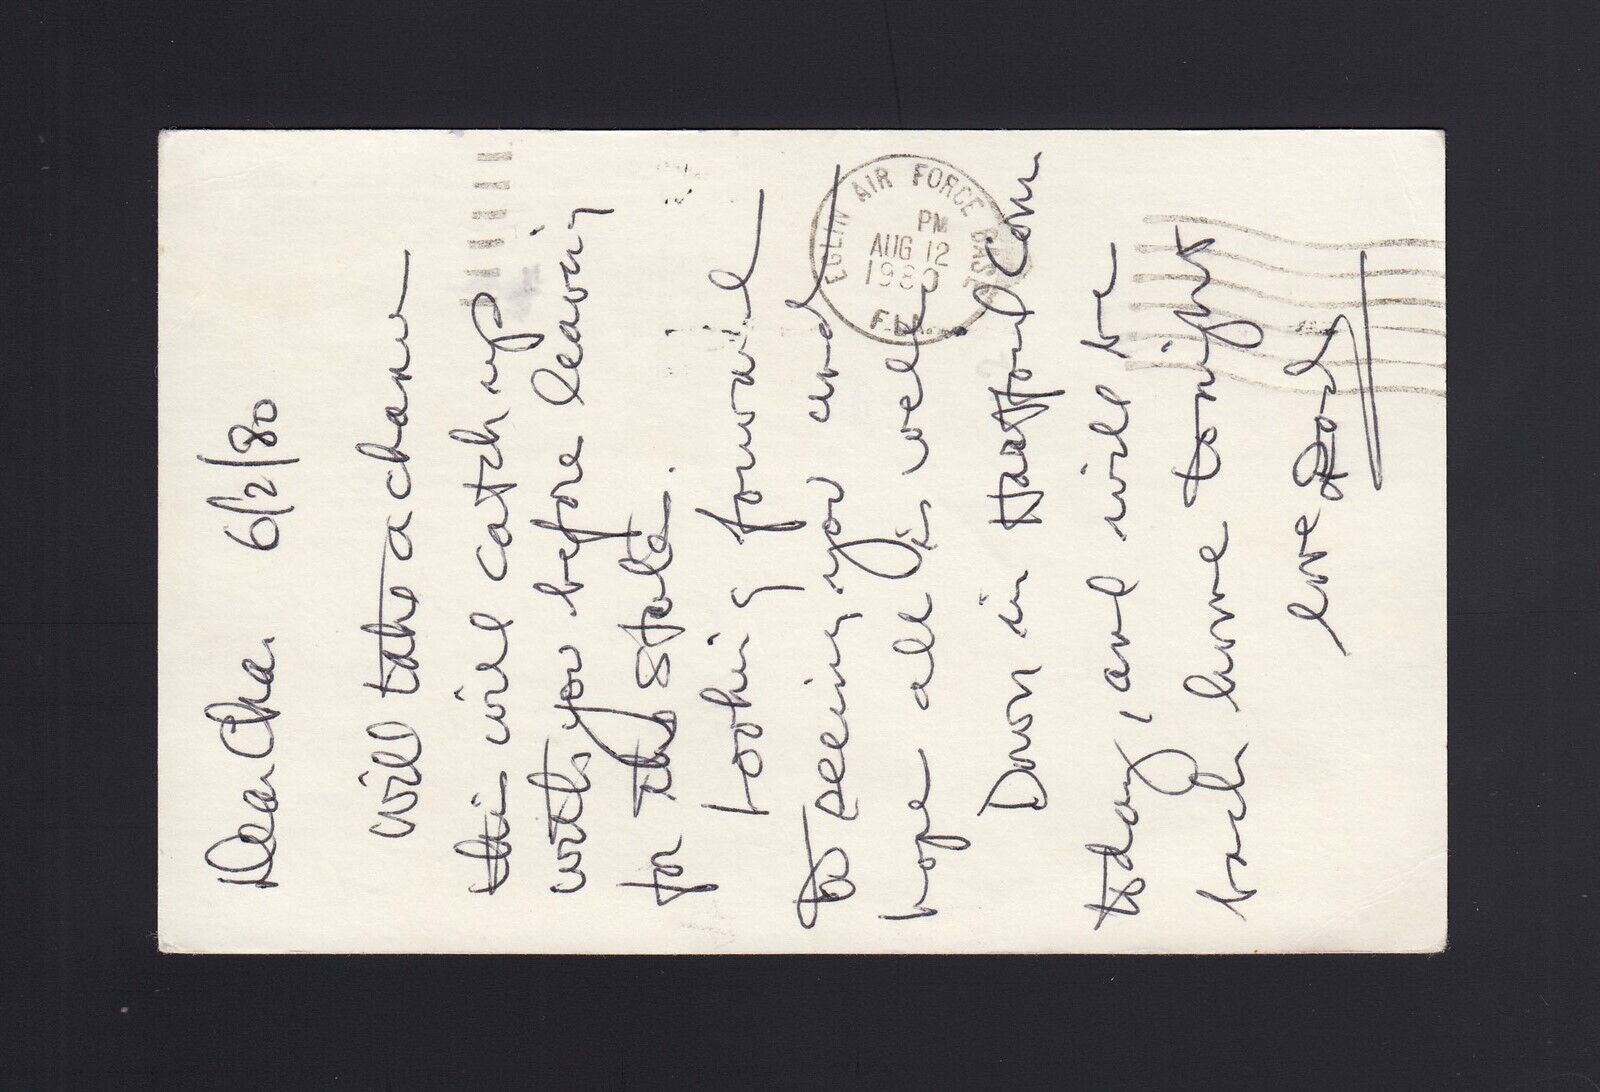 Dear Cha. 6/2/80
will take a chance
this will catch up
with you before leaving
for the States.
Looking forward
to seeing you and
hope all is well.
Down in Hartford Conn
today, and will be
back home tonight
love
EGLIN AIR FORCE BASE
PM
AUG 12
1980
FLA.